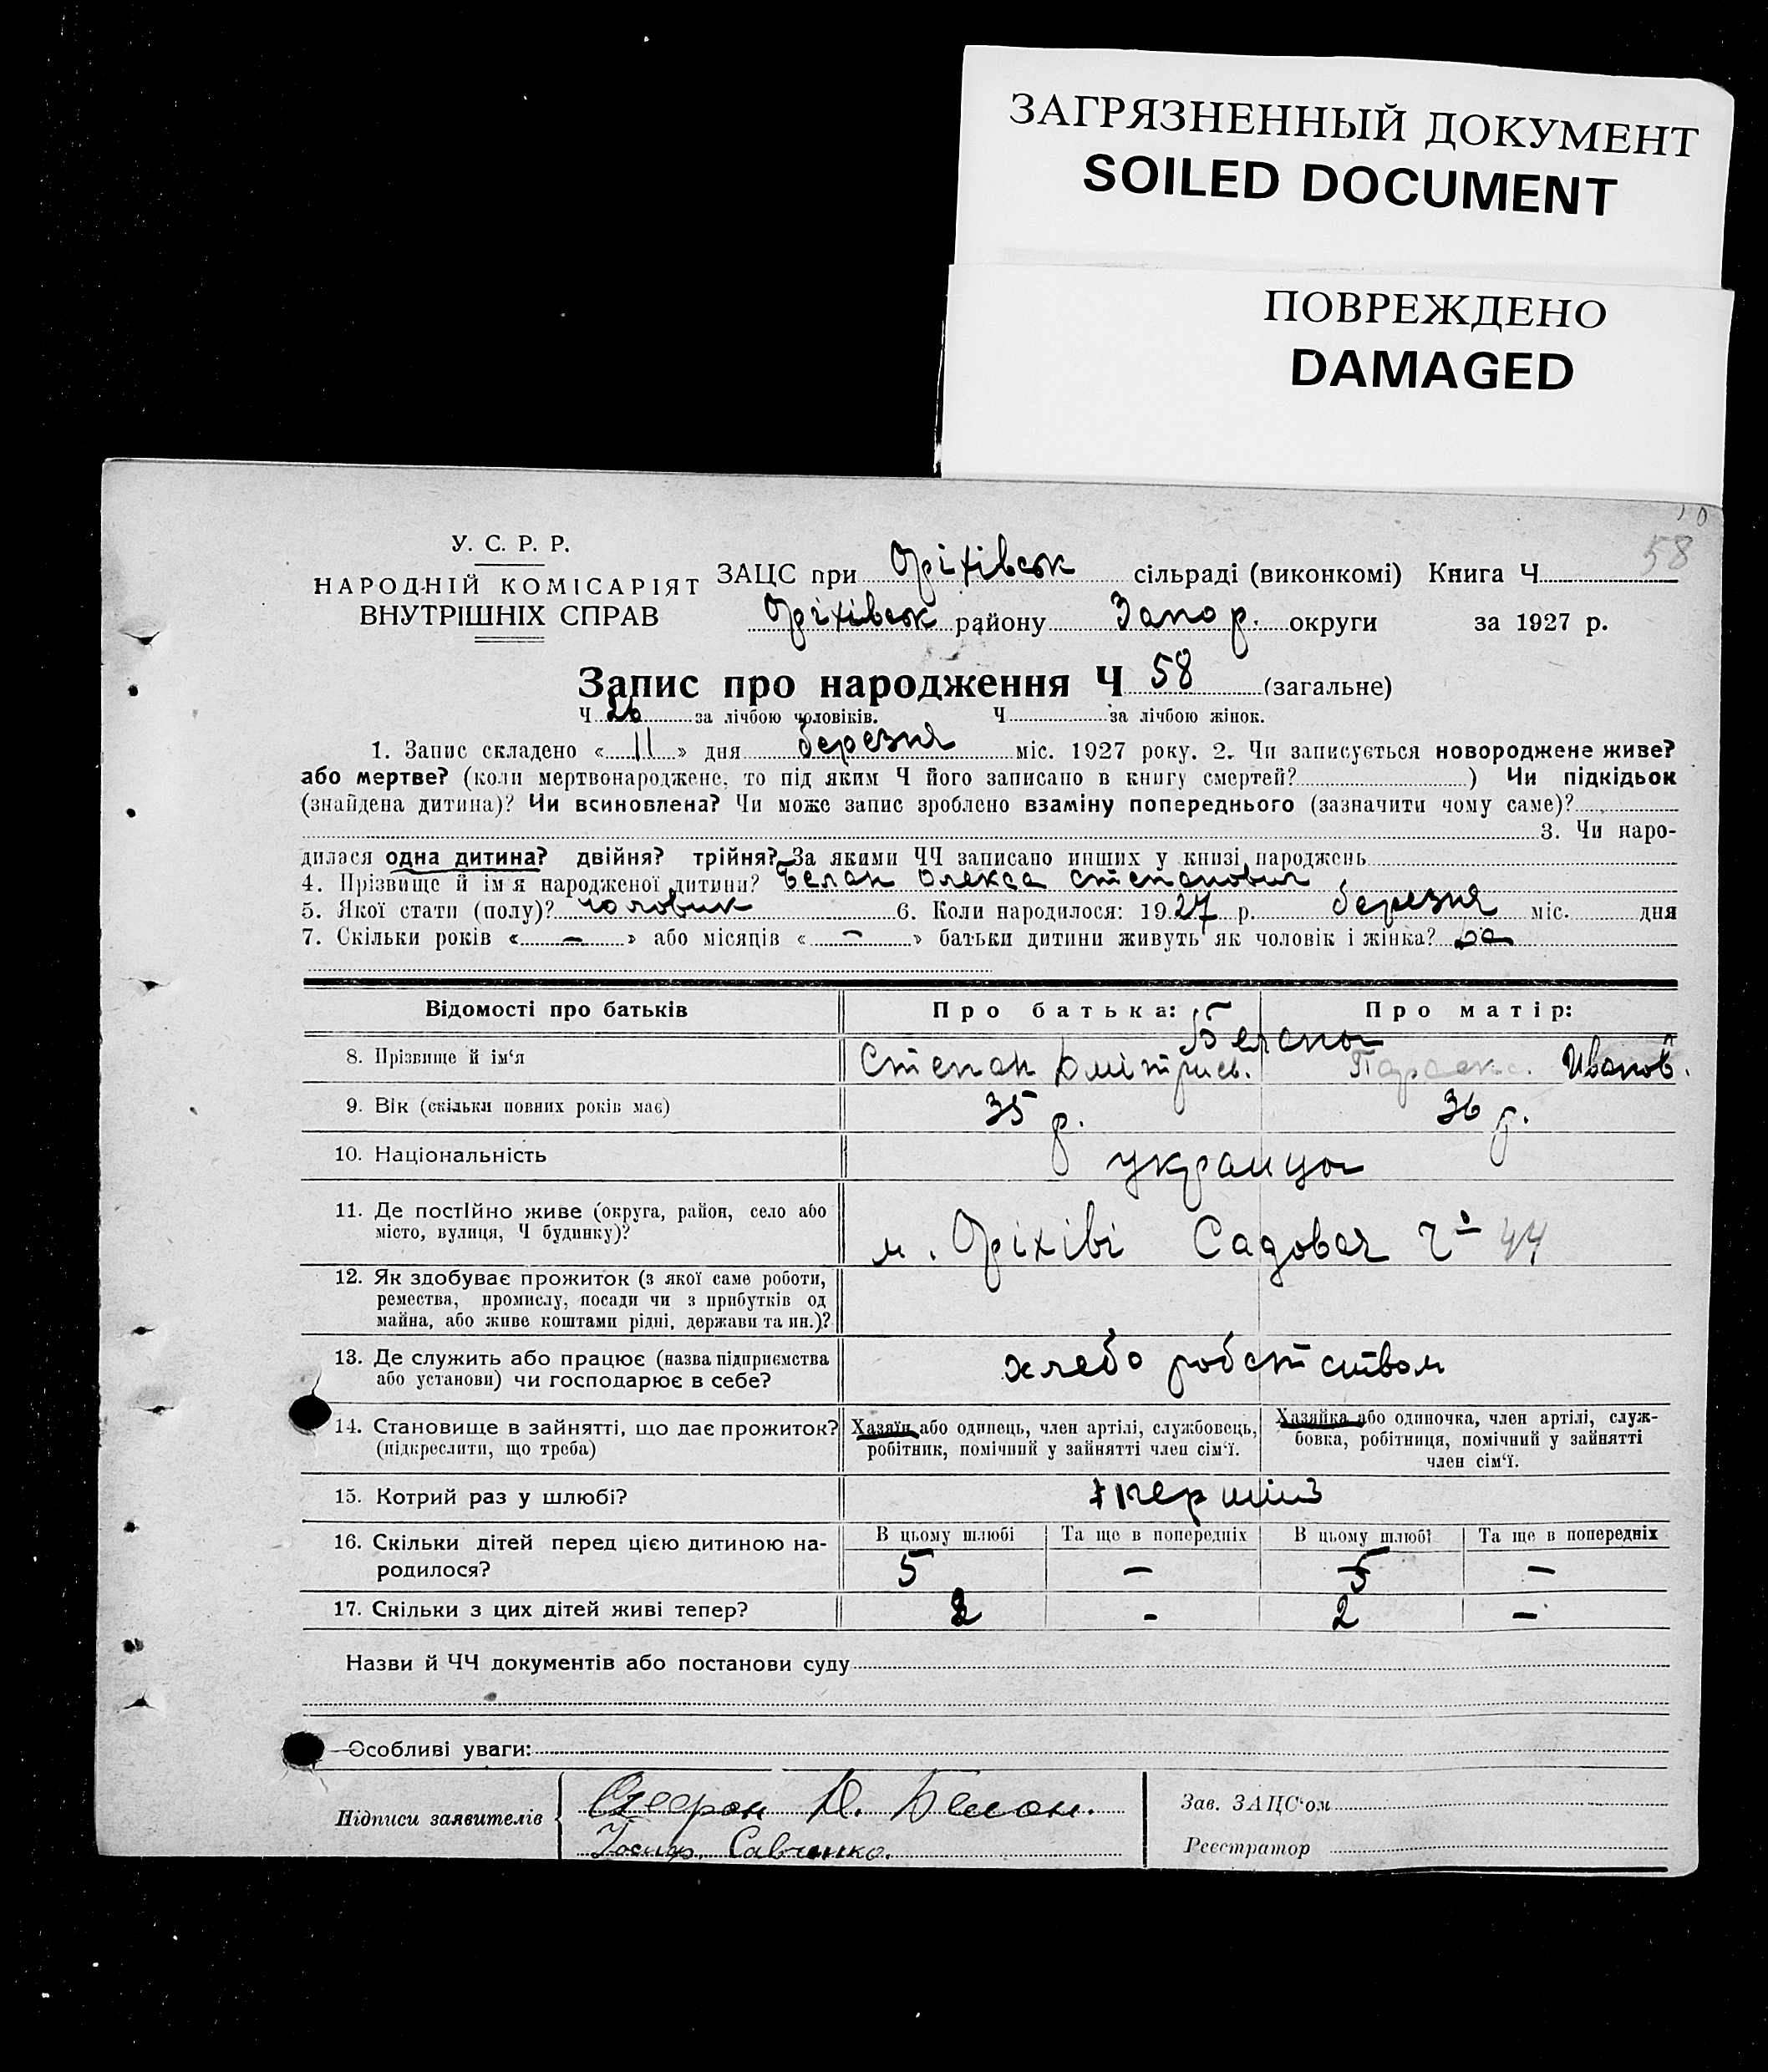 ЗАГРЯЗНЕННЫЙ ДОКУМЕНТ
SOILED DOCUMENT
ПОВРЕЖДЕНО
DAMAGED
58
У. С. Р. Р.
НАРОДНІЙ КОМІСАРІЯТ
ВНУТРІШНІХ СПРАВ
ЗАЦС при Оріхівськ сільраді (виконкомі) Книга Ч
Оріхівськ району Запор. округи за 1927 р.
Запис про народження Ч 58 (загальне)
Ч 26 за лічбою чоловіків. Ч за лічбою жінок.
1. Запис складено « 11 » дня березня міс. 1927 року. 2. Чи записується новороджене живе?
або мертве? (коли мертвонароджене, то під яким Ч його записано в книгу смертей? ) Чи підкідьок
(знайдена дитина)? Чи всиновлена? Чи може запис зроблено взаміну попереднього (зазначити чому саме)?
3. Чи наро-
дилася одна дитина? двійня? трійня? За якими ЧЧ записано инших у книзі народжень
4. Прізвище й ім'я народженої дитини? Белан Олекса Степанович
5. Якої стати (полу)? чоловик 6. Коли народилося: 1927 р. березня міс. дня
7. Скільки років « — » або місяців « — » батьки дитини живуть як чоловік і жінка?
Відомості про батьків
Про батька:
Про матір:
8. Прізвище й ім'я
Белани
Степан Дмітриев.
Параск. Иванов.
9. Вік (скільки повних років має)
35 р.
36 р.
10. Національність
украинци
11. Де постійно живе (округа, район, село або
місто, вулиця, Ч будинку)?
м. Оріхіві Садовая 44
12. Як здобуває прожиток (з якої саме роботи,
ремества, промислу, посади чи з прибутків од
майна, або живе коштами рідні, держави та ин.)?
13. Де служить або працює (назва підприємства
або установи) чи господарює в себе?
хлебо робством
14. Становище в зайнятті, що дає прожиток?
(підкреслити, що треба)
Хазяїн або одинець, член артілі, службовець,
робітник, помічний у зайнятті член сім'ї.
Хазяйка або одиночка, член артілі, служ-
бовка, робітниця, помічний у зайнятті
член сім'ї.
15. Котрий раз у шлюбі?
16. Скільки дітей перед цією дитиною на-
родилося?
В цьому шлюбі
Та ще в попередніх
В цьому шлюбі
Та ще в попередніх
5 — 5 —
17. Скільки з цих дітей живі тепер?
2 - 2 —
Назви й ЧЧ документів або постанови суду
Особливі уваги:
Підписи заявителів
Белан.
Савченко.
Зав. ЗАЦС'ом
Реєстратор